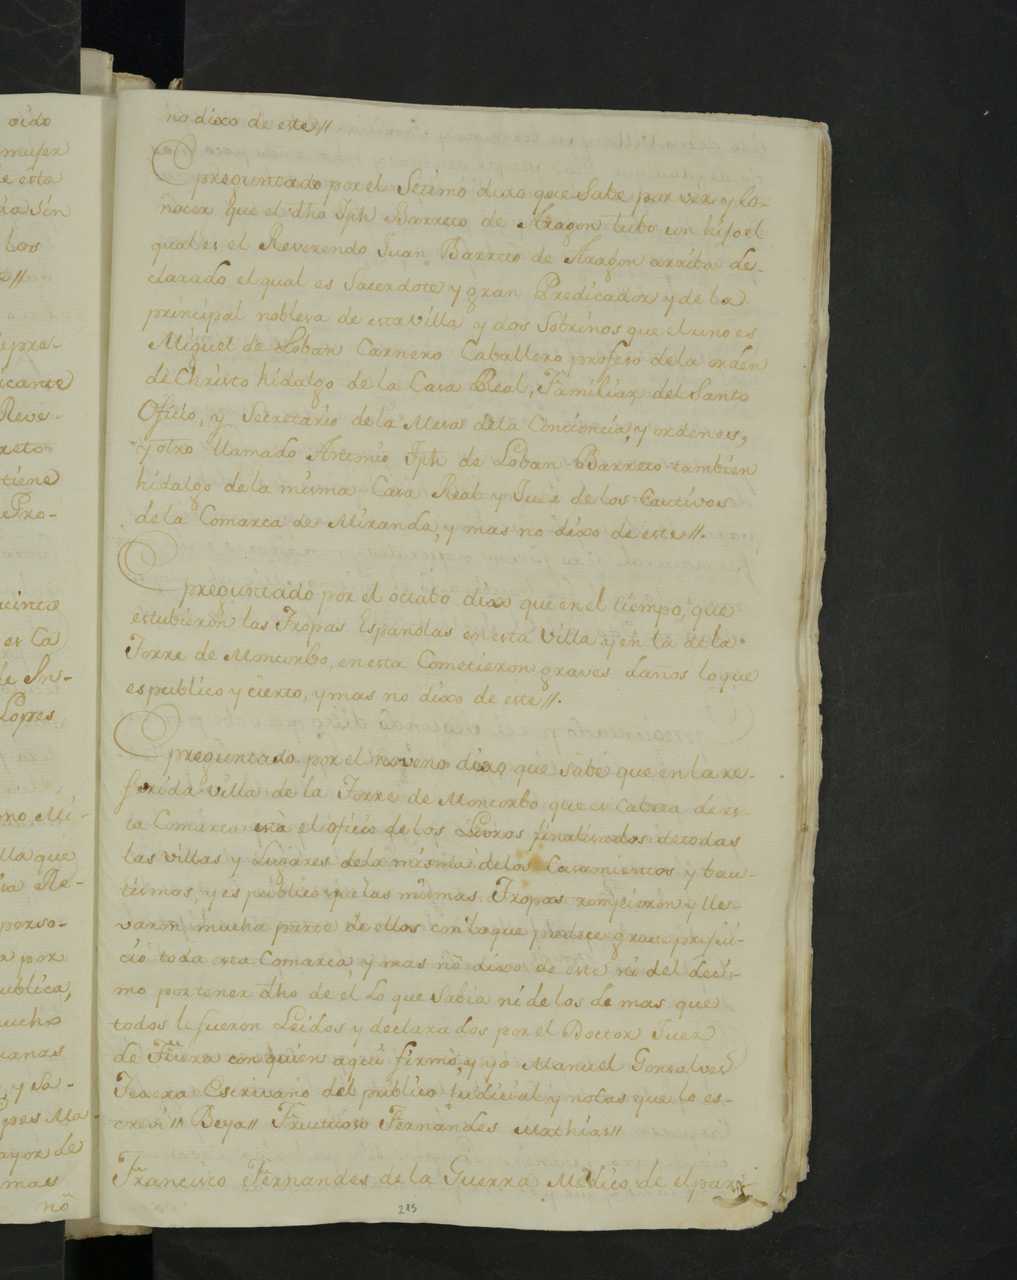 oido
muger
e esta
ia sin
los
e//
epre-
icante
Reve-
rreto
tiene
e Pro-
cinto
es Ca
de Ins-
Lopes
ono Mi-
lla que
ia Re-
perso-
a por
ublica,
ucho
uanas
y Sa-
pes Ma-
ayor de
mas
nõ
no dixo de este//
preguntado por el Setimo dixo que Sabe por ver y Co-
nocer que el dho Jph Barreto de Aragon tubo un hijo el
qual es el Reverendo Juan Barreto de Aragon arriba de-
clarado el qual es Sacerdote y gran Predicador y de la
principal nobleza de esta Villa y dos Sobrinos que el uno es
Miguel de Loban Carnero Caballero profeso de la orden
de Christo hidalgo de la Casa Real, Familiar del Santo
Oficio, y Secretario de la Mesa de la Conciencia, y ordenes,
y otro llamado Antonio Jph de Loban Barreto tambien
hidalgo de la misma Casa Real y Juez de los Cautivos
de la Comarca de Miranda, y mas no dixo de este//.
preguntado por el octabo dixo que en el tiempo, que
estubieron las Tropas Españolas en esta Villa y en la de la
Torre de Moncorbo, en esta Cometieron graves daños lo que
es publico y cierto, y mas no dixo de este//.
preguntado por el noveno dixo que sabe que en la re-
ferida Villa de la Torre de Moncorbo que es Cabeza de es-
ta Comarca está el oficio de los Livros finalizados de todas
las Villas y Lugares de la misma de los Casamientos y bau-
tismos, y es publico que las mismas Tropas rompieron y lle-
varon mucha parte de ellos con lo que padece grave prejui-
cio toda esta Comarca, y mas nõ dixo de este ni del deci-
mo por tener dho de el Lo que Sabia ni de los de mas que
todos le fueron Leidos y declarados por el Doctor Juez
de Fuera con quien aqui firmó, y yo Manuel Gonsalves
Texera Escrivano del publico Judicial y notas que lo es-
crevi// Beya// Frutuoso Fernandes Mathias//
Francisco Fernandes de la Guerra Medico de el par-
215